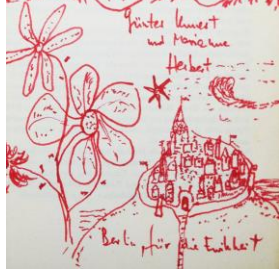 Günter Kunert
und Marianne
Herbst
Berlin für die Ewigkeit